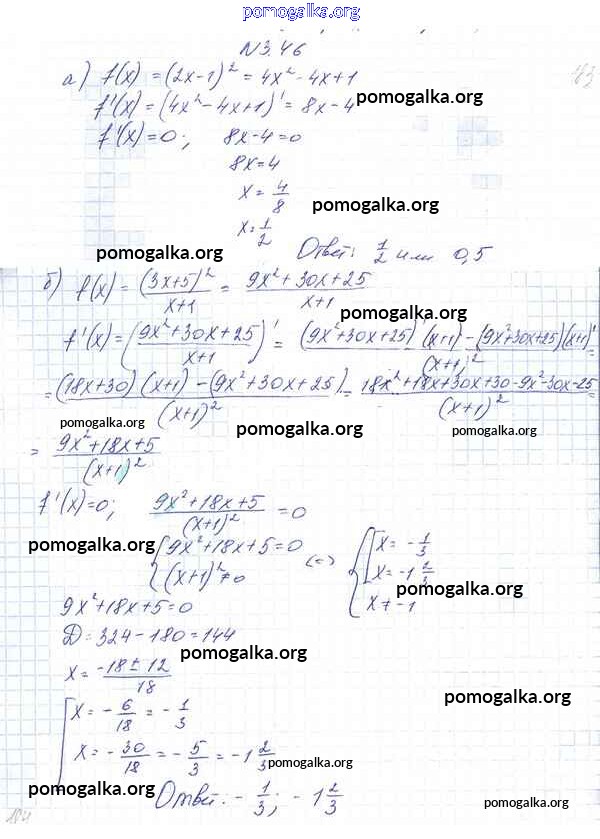 pomogalka.org
N3.46
а) f(x) = (2x-1)² = 4x² - 4x + 1
f'(x) = (4x² - 4x + 1)' = 8x - 4 pomogalka.org
f'(x) = 0; 8x - 4 = 0
pomogalka.org 8x = 4
x = 4/8 pomogalka.org
x = 1/2
pomogalka.org Ответ: 1/2 или 0,5
б) f(x) = (3x+5)²/(x+1) = (9x² + 30x + 25)/(x+1)
pomogalka.org
f'(x) = ((9x² + 30x + 25)/(x+1))' = ((9x² + 30x + 25)' (x+1) - (9x² + 30x + 25)(x+1)')/(x+1)² =
= ((18x+30)(x+1) - (9x² + 30x + 25))/(x+1)² = (18x² + 18x + 30x + 30 - 9x² - 30x - 25)/(x+1)² =
pomogalka.org pomogalka.org pomogalka.org
= (9x² + 18x + 5)/(x+1)²
f'(x) = 0; (9x² + 18x + 5)/(x+1)² = 0
pomogalka.org { 9x² + 18x + 5 = 0 (=) { [ x = -1/3
(x+1)² ≠ 0 x = -1 2/3
pomogalka.org
x ≠ -1
9x² + 18x + 5 = 0
D = 324 - 180 = 144
pomogalka.org
x = (-18 ± 12)/18
pomogalka.org
[ x = -6/18 = -1/3
x = -30/18 = -5/3 = -1 2/3
pomogalka.org
pomogalka.org Ответ: -1/3; -1 2/3 pomogalka.org